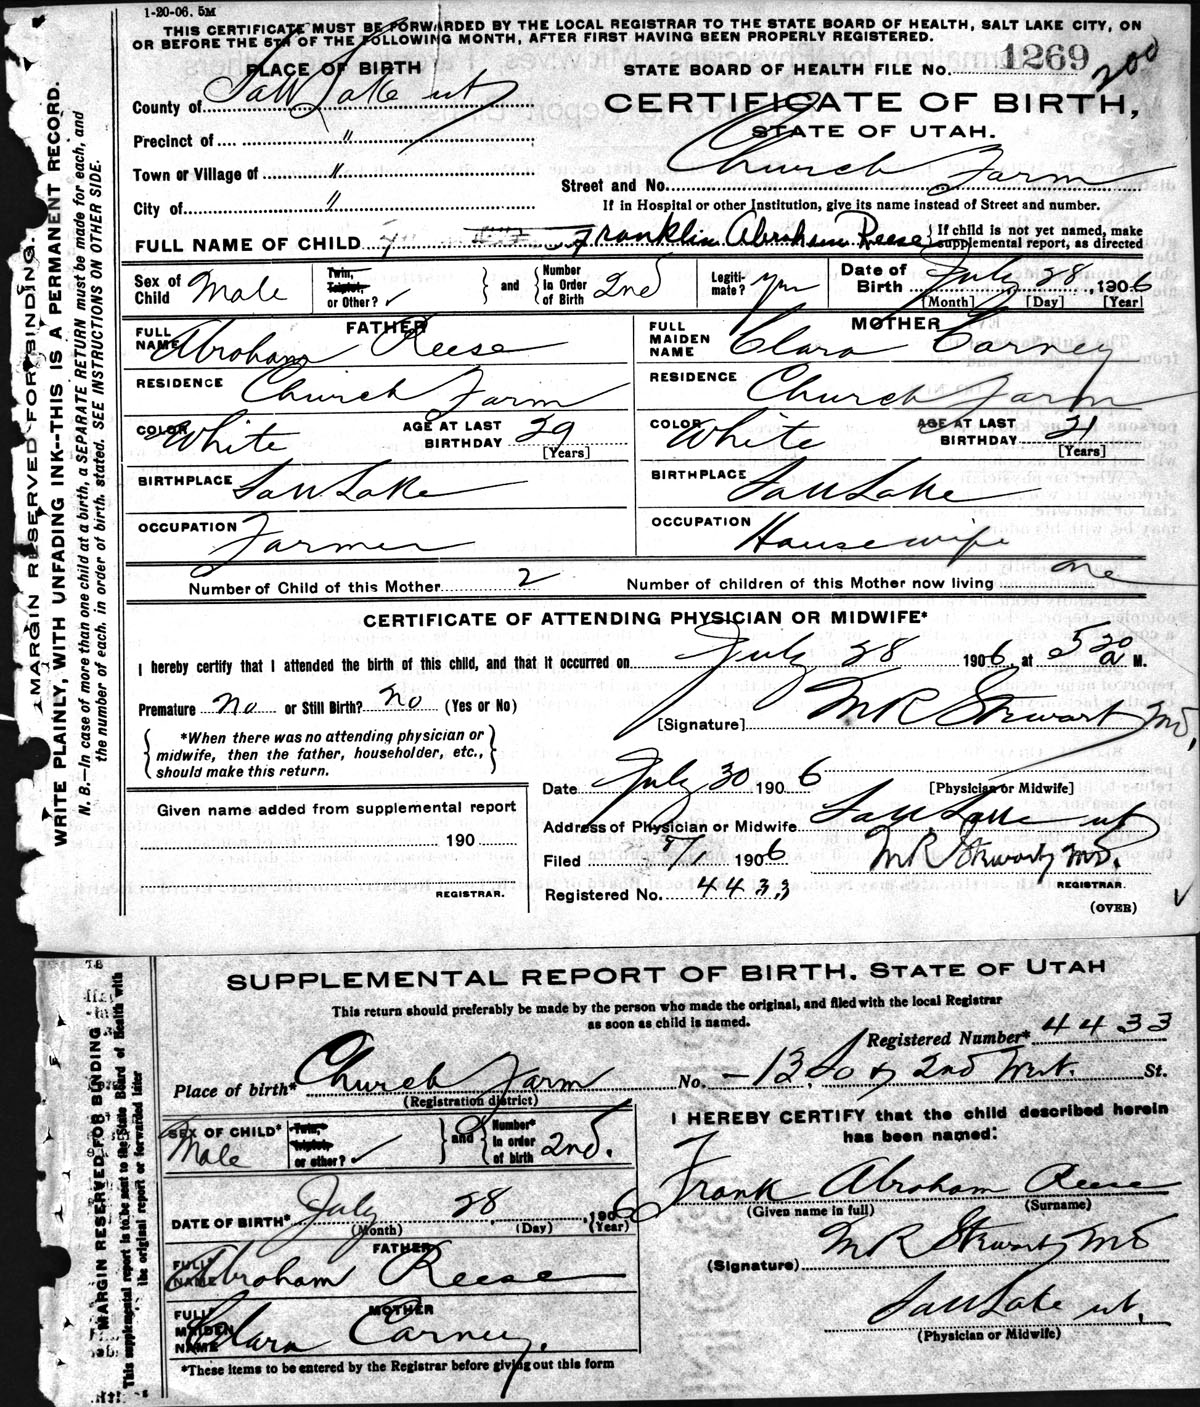 1-20-06. 5M
THIS CERTIFICATE MUST BE FORWARDED BY THE LOCAL REGISTRAR TO THE STATE BOARD OF HEALTH, SALT LAKE CITY, ON
OR BEFORE THE 5TH OF THE FOLLOWING MONTH, AFTER FIRST HAVING BEEN PROPERLY REGISTERED.
PLACE OF BIRTH
STATE BOARD OF HEALTH FILE No. 1269 200
County of Salt Lake ut
CERTIFICATE OF BIRTH,
STATE OF UTAH.
Precinct of "
Town or Village of "
Street and No. Church Farm
City of "
If in Hospital or other Institution, give its name instead of Street and number.
FULL NAME OF CHILD Franklin Abraham Reese { If child is not yet named, make
supplemental report, as directed
Sex of Child Male
Twin, Triplet, or Other? ✓ } and { Number In Order of Birth 2nd
Legiti-mate? yes
Date of Birth July 28, 1906
[Month] [Day] [Year]
FATHER
FULL NAME Abraham Reese
MOTHER
FULL MAIDEN NAME Clara Carney
RESIDENCE Church Farm
RESIDENCE Church Farm
COLOR White AGE AT LAST BIRTHDAY 29 [Years]
COLOR White AGE AT LAST BIRTHDAY 21 [Years]
BIRTHPLACE Salt Lake
BIRTHPLACE Salt Lake
OCCUPATION Farmer
OCCUPATION Housewife
Number of Child of this Mother 2 Number of children of this Mother now living one
CERTIFICATE OF ATTENDING PHYSICIAN OR MIDWIFE*
I hereby certify that I attended the birth of this child, and that it occurred on July 28 1906, at 5 20 a M.
Premature no or Still Birth? no (Yes or No)
[Signature] M R Stewart MD,
{ *When there was no attending physician or
midwife, then the father, householder, etc.,
should make this return. }
Date July 30 1906
[Physician or Midwife]
Given name added from supplemental report
190
REGISTRAR.
Address of Physician or Midwife Salt Lake ut
Filed 8/1 1906 M R Stewart MD.
REGISTRAR.
Registered No. 4433
(OVER)
MARGIN RESERVED FOR BINDING.
WRITE PLAINLY, WITH UNFADING INK--THIS IS A PERMANENT RECORD.
N. B.—In case of more than one child at a birth, a SEPARATE RETURN must be made for each, and
the number of each, in order of birth, stated. SEE INSTRUCTIONS ON OTHER SIDE.
SUPPLEMENTAL REPORT OF BIRTH. STATE OF UTAH
This return should preferably be made by the person who made the original, and filed with the local Registrar
as soon as child is named.
Registered Number* 4433
Place of birth* Church Farm No. St.
(Registration district)
SEX OF CHILD* Male
Twin, Triplet or other? ✓ } and { Number* in order of birth 2nd.
I HEREBY CERTIFY that the child described herein
has been named:
Frank Abraham Reese
(Given name in full) (Surname)
DATE OF BIRTH* July 28, 1906
(Month) (Day) (Year)
FATHER
FULL NAME Abraham Reese
(Signature) M R Stewart MD
MOTHER
FULL MAIDEN NAME Clara Carney.
Salt Lake ut.
(Physician or Midwife)
*These items to be entered by the Registrar before giving out this form
MARGIN RESERVED FOR BINDING
This supplemental report is to be sent to the State Board of Health with
the original report or forwarded later